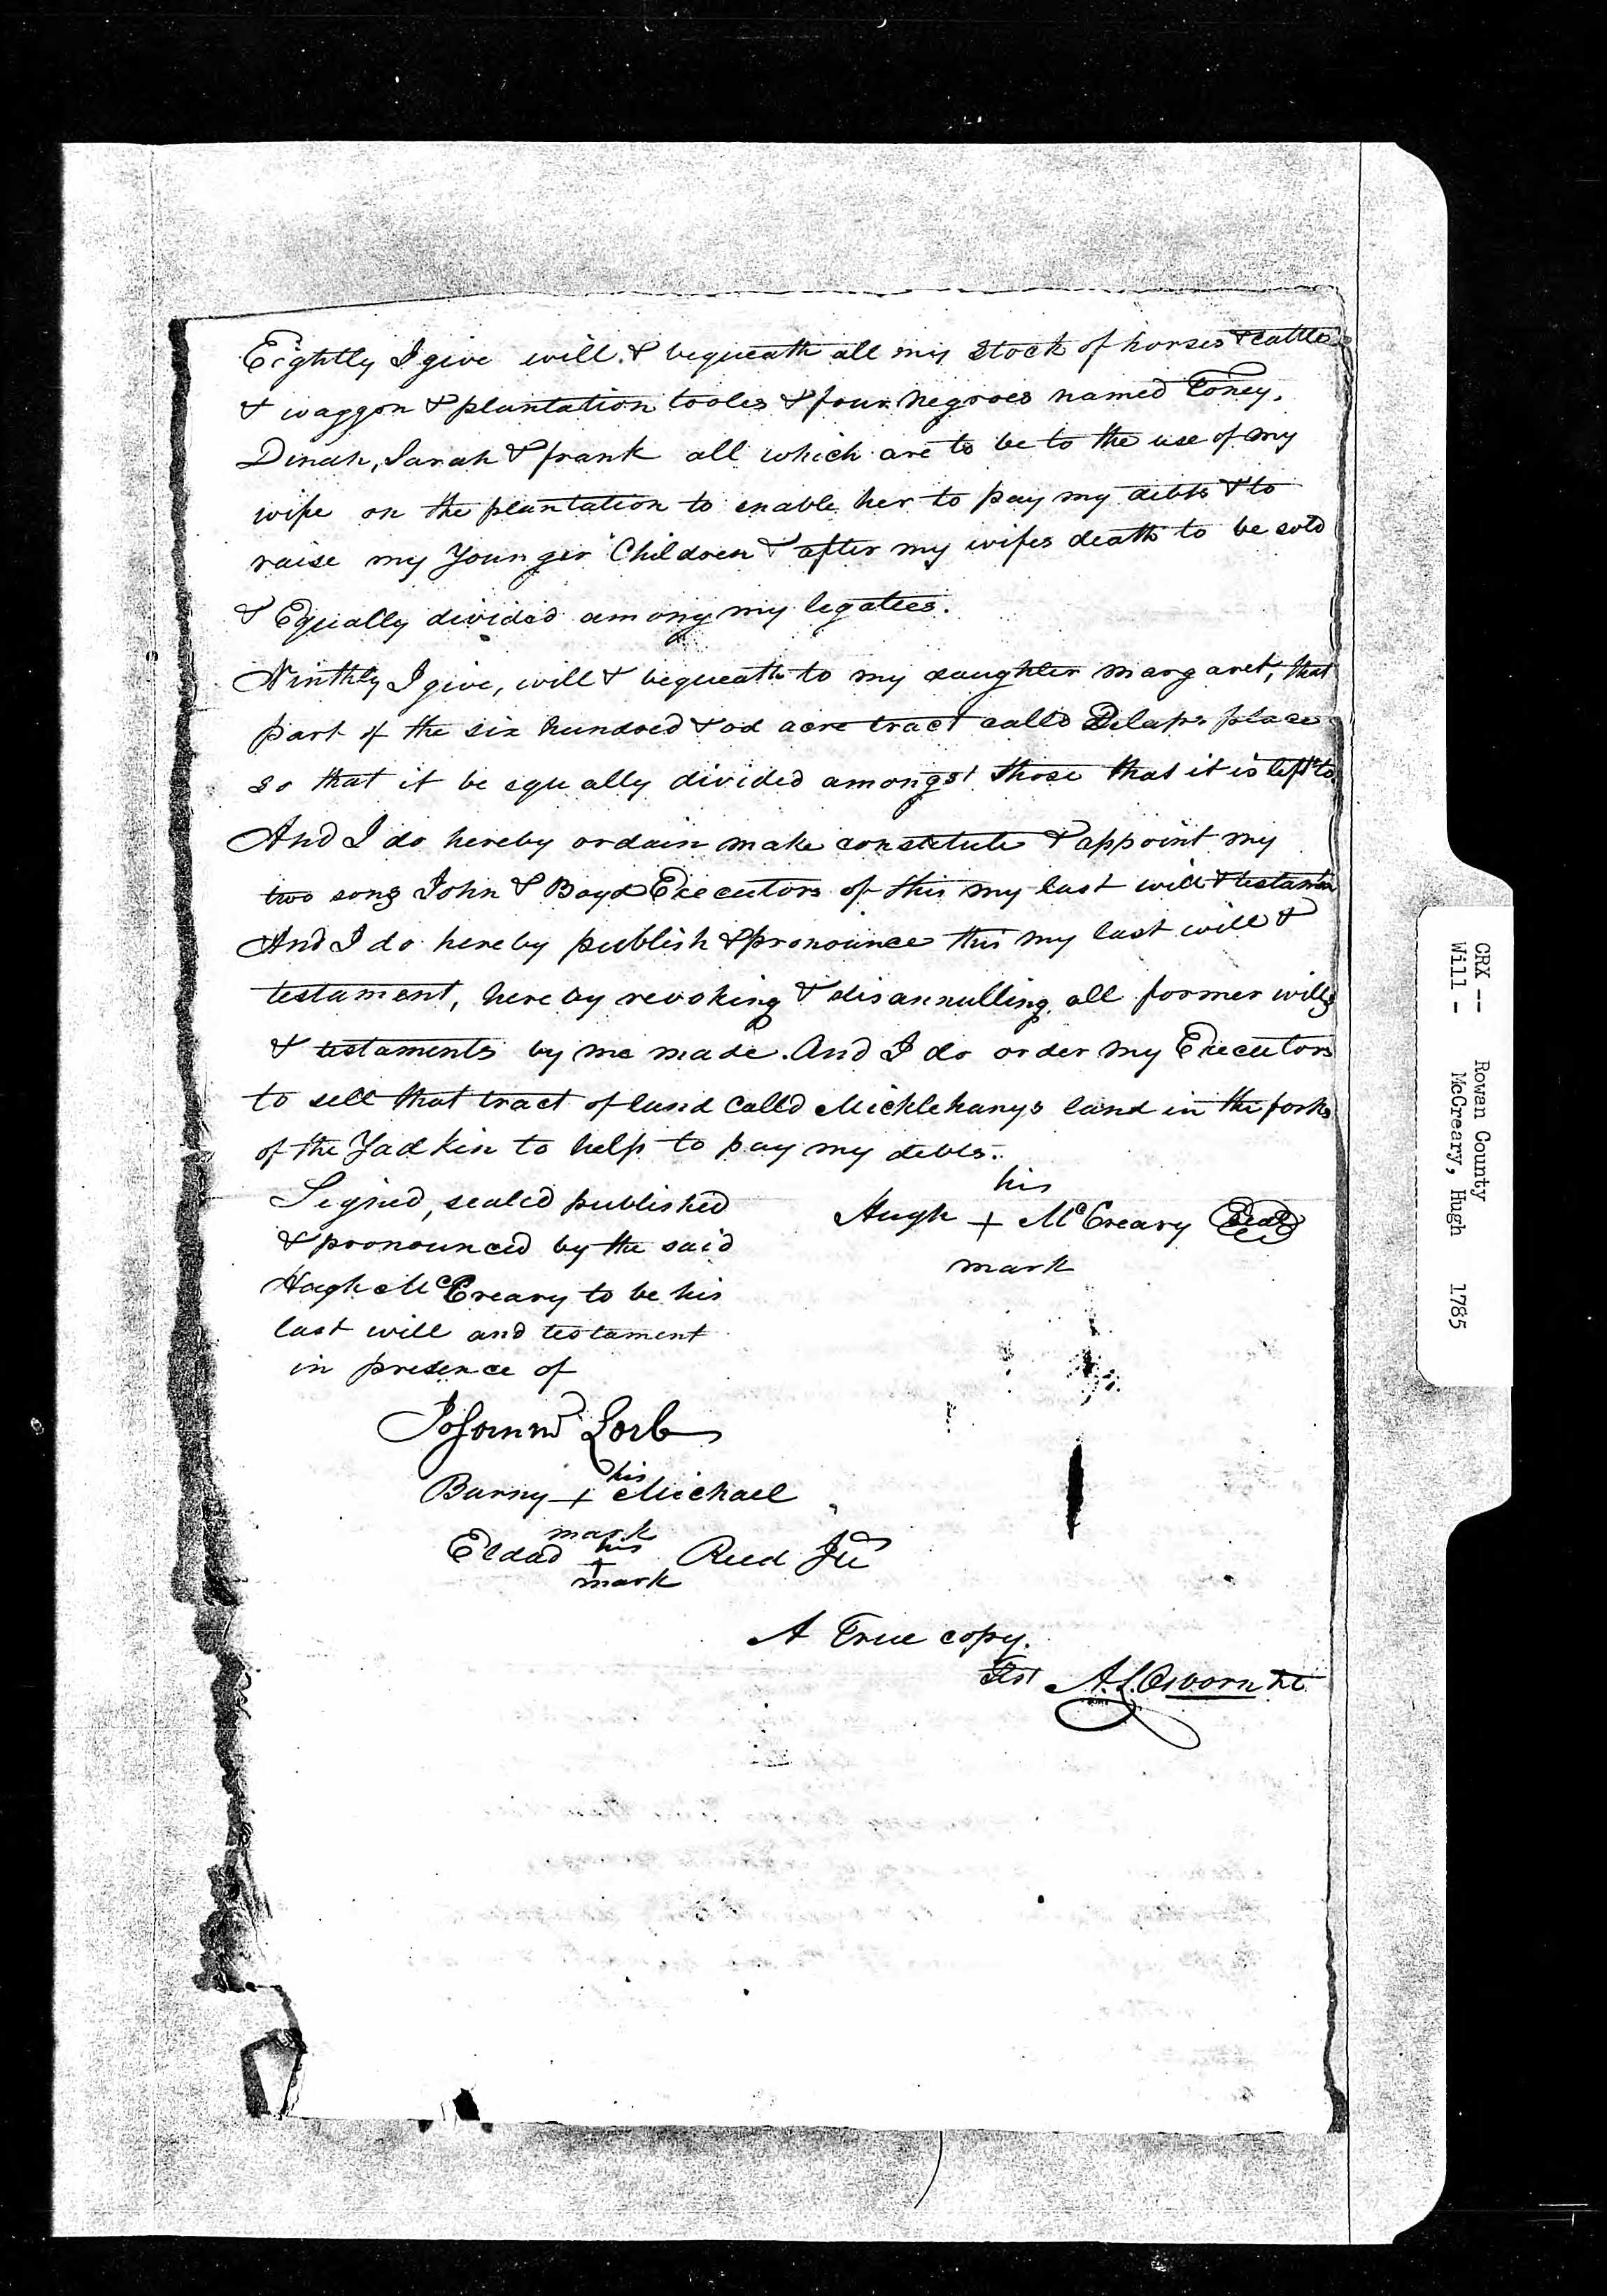 Eightly I give will & bequeath all my Stock of horses & cattle
& waggon & plantation tooles & four negroes named Toney,
Dinah, Sarah & frank all which are to be to the use of my
wife on the plantation to enable her to pay my debts & to
raise my Younger Children & after my wifes death to be sold
& Equally divided among my legatees.
Ninthly I give, will & bequeath to my daughter margaret, that
part of the six hundred & od acre tract calld Delaps place
so that it be equally divided amongst those that it is left to
And I do hereby ordain make constitute & appoint my
two sons John & Boyd Executors of this my last will &
And I do hereby publish & pronounce this my last will &
testament, hereby revoking & disannulling all former wills
& testaments by me made. And I do order my Executors
to sell that tract of land Calld Micklehanys land in the forks
of the Yadkin to help to pay my debts.
Signed, sealed published
& pronounced by the said
Hugh McCreary to be his
last will and testament
in presence of
his
Hugh + McCreary Seal
mark
his
Barny + Michael
mark
his
Eldad + Reed Jur
mark
A True copy.
Test A. L. Osborn
CRX -- Rowan County
Will - McCreary, Hugh 1785